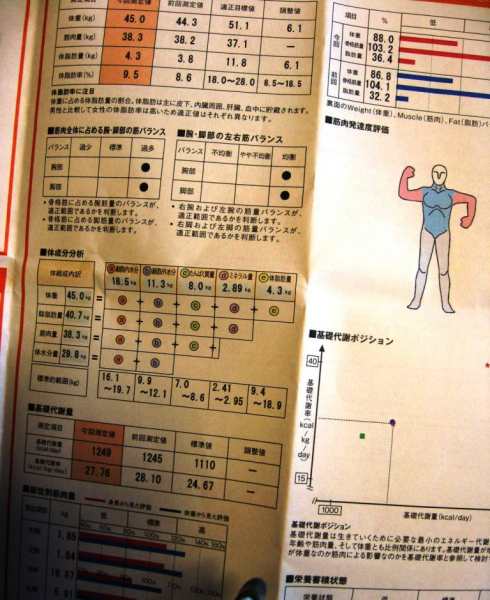 測定項目 今回測定値 前回測定値 適正目標値 調整値
体重(kg) 45.0 44.3 51.1 6.1
筋肉量(kg) 38.3 38.2 37.1 —
体脂肪量(kg) 4.3 3.8 11.8 6.1
体脂肪率(%) 9.5 8.6 18.0〜28.0 8.5〜18.5
体脂肪率に注目
体重に占める体脂肪量の割合。体脂肪は主に皮下、内臓周囲、肝臓、血中に貯蔵されます。
男性と比較して女性の体脂肪率は高いため適正値はそれぞれ異なります。
■筋肉全体に占める腕・脚部の筋バランス
バランス 過少 標準 過多
腕部 ●
脚部 ●
・骨格筋に占める腕筋量のバランスが、
適正範囲であるかを判断します。
・骨格筋に占める脚筋量のバランスが、
適正範囲であるかを判断します。
■腕・脚部の左右筋バランス
バランス 不均衡 やや不均衡 均衡
腕部 ●
脚部 ●
・右腕および左腕の筋量バランスが、
適正範囲であるかを判断します。
・右脚および左脚の筋量バランスが、
適正範囲であるかを判断します。
■体成分分析
体組成内訳 ⓐ細胞内水分 ⓑ細胞外水分 ⓒたんぱく質量 ⓓミネラル量 ⓔ体脂肪量
18.5 kg 11.3 kg 8.0 kg 2.89 kg 4.3 kg
体重 45.0 kg = ⓐ + ⓑ + ⓒ + ⓓ + ⓔ
除脂肪量 40.7 kg = ⓐ + ⓑ + ⓒ + ⓓ
筋肉量 38.3 kg = ⓐ + ⓑ + ⓒ
体水分量 29.8 kg = ⓐ + ⓑ
標準的範囲(kg) 16.1〜19.7 9.9〜12.1 7.0〜8.6 2.41〜2.95 9.4〜18.9
■基礎代謝量
測定項目 今回測定値 前回測定値 標準値 調整値
基礎代謝量(kcal/day) 1249 1245 1110 —
基礎代謝率(kcal/kg/day) 27.76 28.10 24.67 —
部位別筋肉量
身長から見た評価 体重から見た評価
測定項目 kg 低 標準 高
1.65
1.64
16.67
5.91
項目 % 低
今回 体重 88.0
骨格筋量 103.2
脂肪量 36.4
前回 体重 86.8
骨格筋量 104.1
脂肪量 32.2
裏面のWeight(体重)、Muscle(筋肉)、Fat(脂肪)
■筋肉発達度評価
■基礎代謝ポジション
40
基礎代謝率(kcal/kg/day)
15
1000
基礎代謝量(kcal/day)
基礎代謝ポジション
基礎代謝量は生きていくために必要な最小のエネルギー代謝
年齢や筋肉量、そして体重とも比例関係にあります。基礎代謝量が
が体重なのか筋肉による影響なのかを基礎代謝率と参照して検討
■栄養蓄積状態